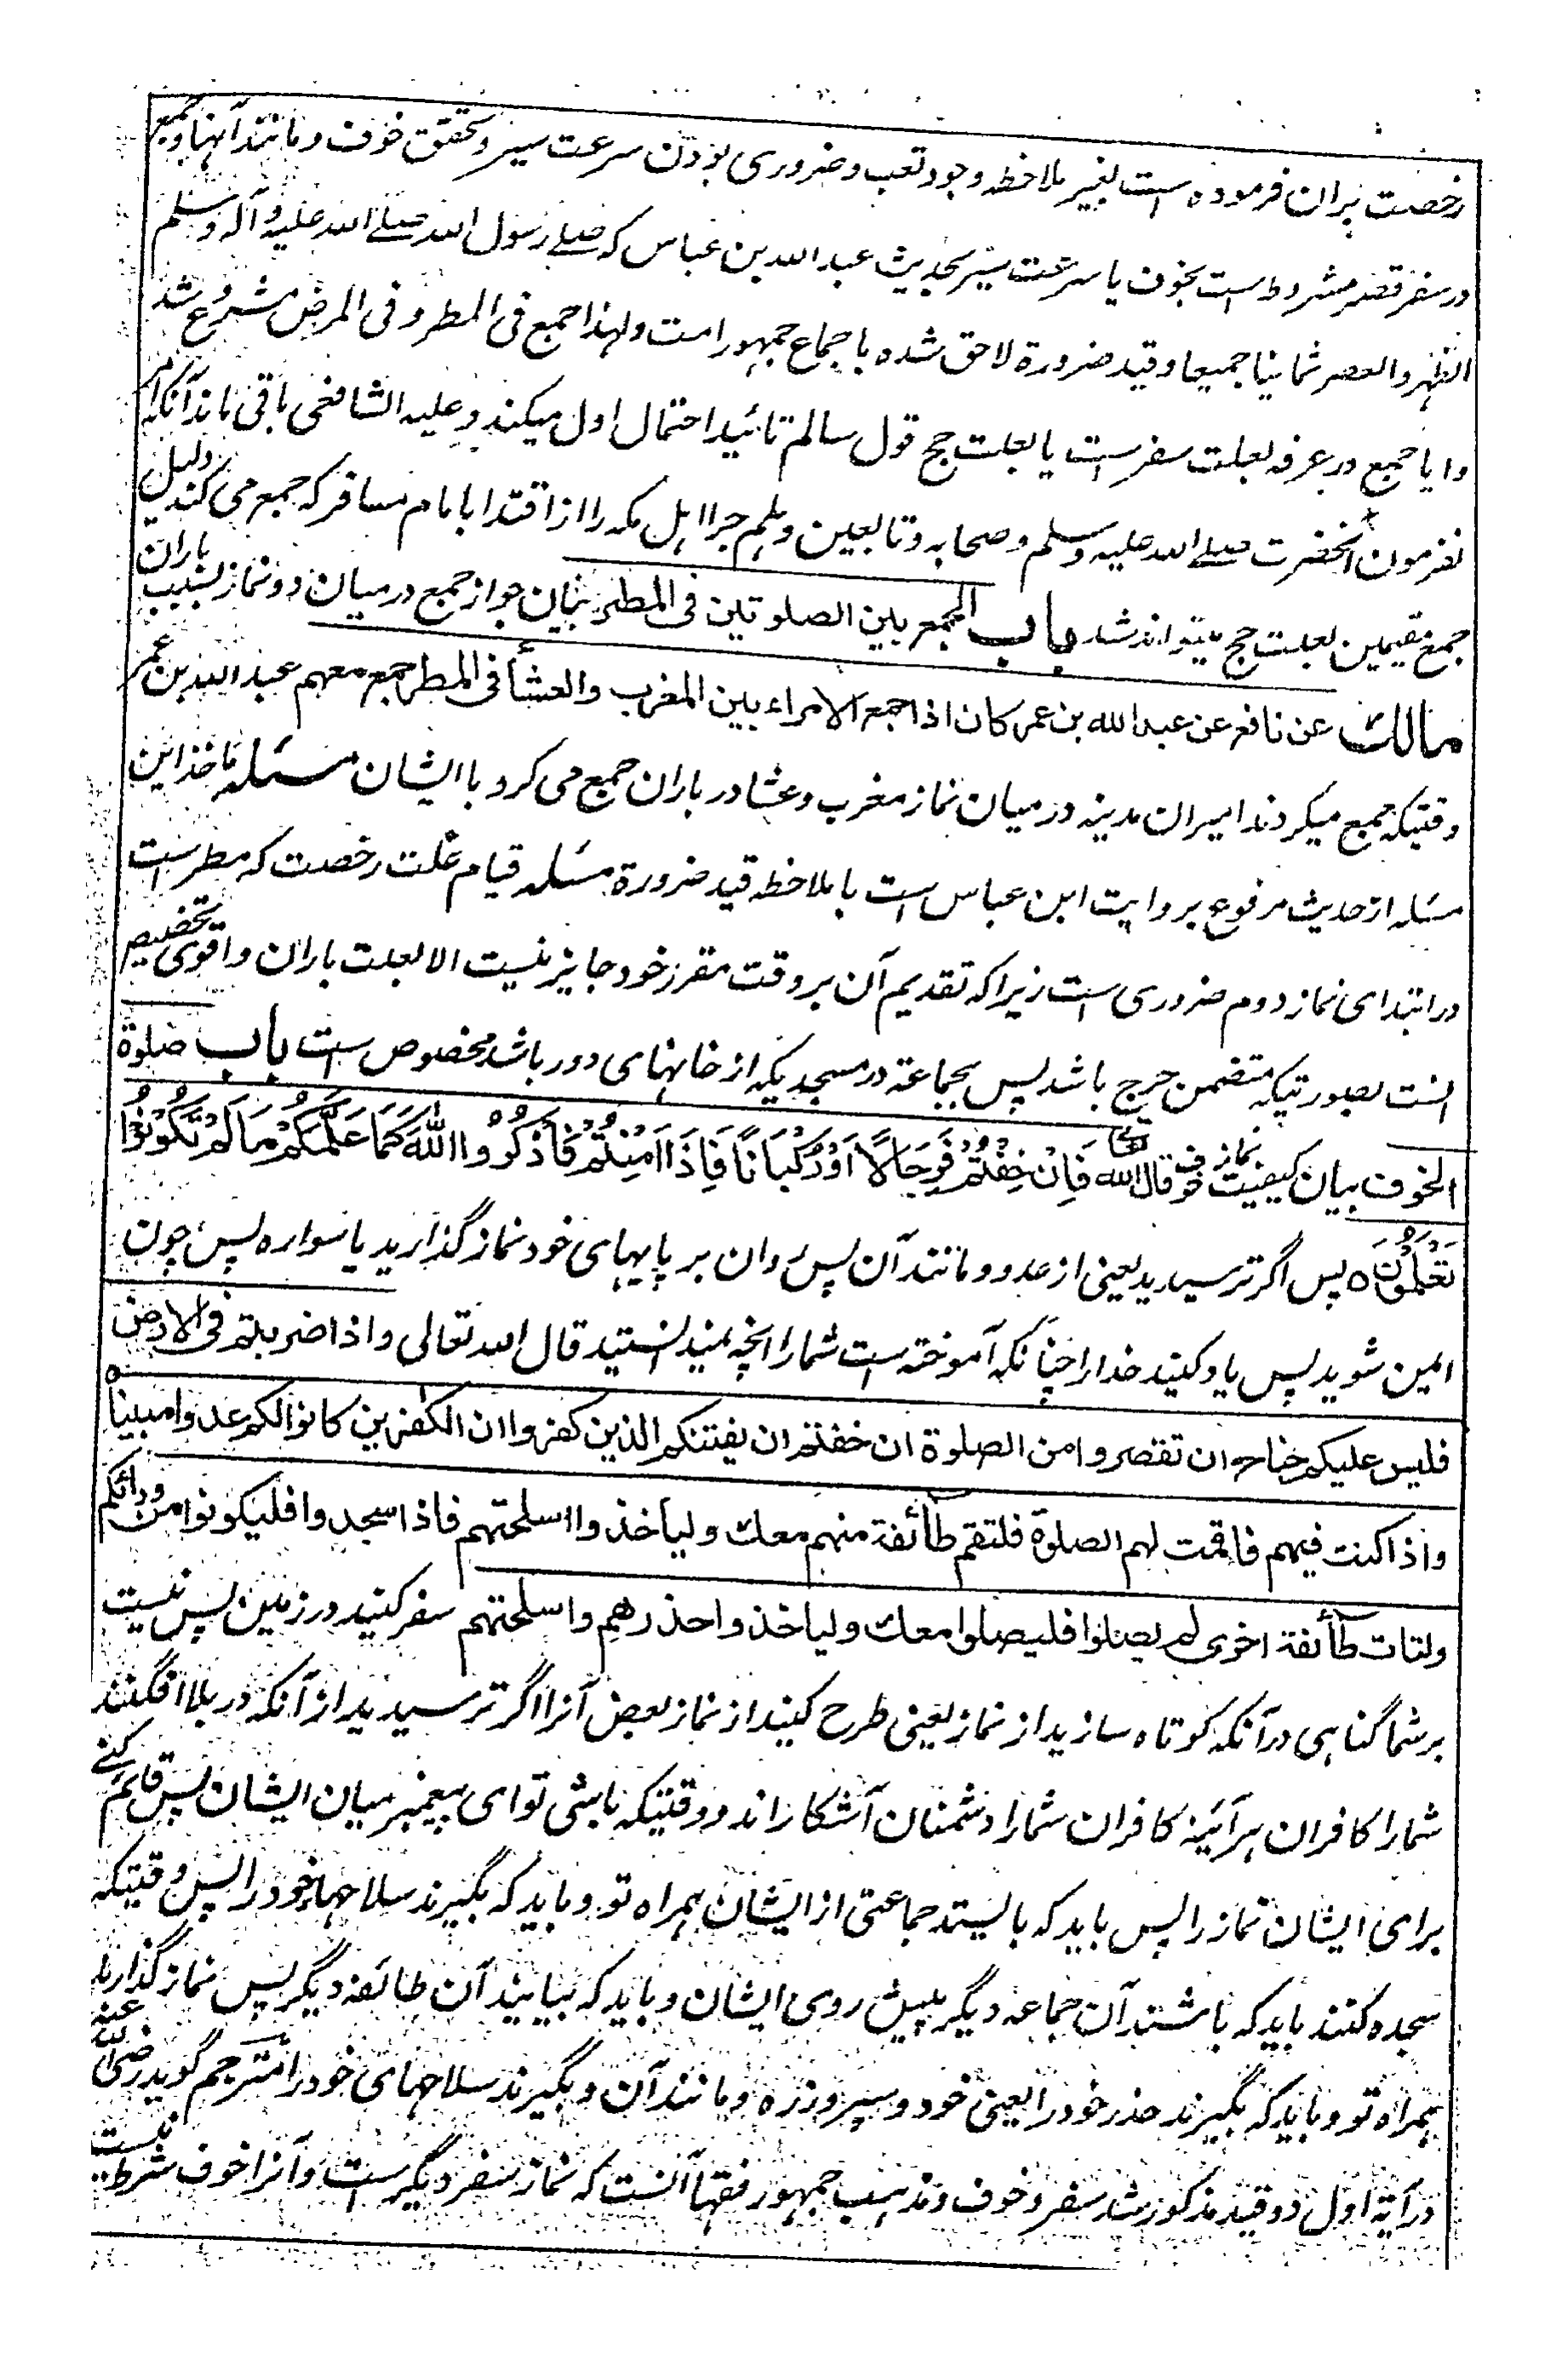 رخصت بران فرموده است بغیر ملاحظه وجود تعب و ضروری بودن سرعت سیر و تحقق خوف و مانند آنها و جمع
در سفر قصر مشروط است بخوف یا سرعت سیر بحدیث عبد الله بن عباس که صلے رسول الله صلے الله علیه و آله وسلم
الظهر والعصر ثمانیا جمیعا و قید ضرورة لاحق شده با جماع جمهور امت ولهذا جمع فی المطر و فی المرض مشروع شد
و ایا جمع در عرفه لعلت سفر است یا لعلت حج قول سالم تائید احتمال اول میکند و علیه الشافعی باقی ماند آنکه امر
نفرمودن آنحضرت صلے الله علیه وسلم و صحابه و تابعین وهلم جرا اهل مکه را از اقتدا بامام مسافر که جمع می کند دلیل
جمع مقیمین لعلت حج میتواند شد باب الجمع بین الصلوتین فی المطر بیان جواز جمع درمیان دو نماز بسبب باران
مالك عن نافع عن عبد الله بن عمر كان اذا جمع الامراء بين المغرب والعشاء فى المطر جمع معهم عبد الله بن عمر
وقتیکه جمع میکردند امیران مدینه درمیان نماز مغرب و عشا در باران جمع می کرد با ایشان مسئله ماخذ این
مسئله از حدیث مرفوع بروایت ابن عباس است با ملاحظه قید ضرورة مسئله قیام علت رخصت که مطر است
در ابتدای نماز دوم ضروری است زیرا که تقدیم آن بر وقت مقرر خود جایز نیست الا لعلت باران و اقوی تخصیص
انست بصورتیکه متضمن حرج باشد پس بجماعة در مسجدیکه از خانهای دور باشد مخصوص است باب صلوة
الخوف بیان کیفیت نماز خوف قال الله تعالی فَاِنْ خِفْتُمْ فَرِجَالًا اَوْ رُكْبَانًا فَاِذَا اَمِنْتُمْ فَاذْكُرُوا اللّٰهَ كَمَا عَلَّمَكُمْ مَا لَمْ تَكُوْنُوْا
تَعْلَمُوْنَ ه پس اگر ترسیدید یعنی از عدو و مانند آن پس روان بر پایهای خود نماز گذارید یا سواره پس چون
ایمن شوید پس یاد کنید خدا را چنانکه آموخته است شما را انچه نمیدانستید قال الله تعالی واذا ضربتم فی الارض
فليس عليكم جناح ان تقصروا من الصلوة ان خفتم ان يفتنكم الذين كفروا ان الكفرين كانوا لكم عدوا مبينا ه
واذا كنت فيهم فاقمت لهم الصلوة فلتقم طائفة منهم معك وليأخذوا اسلحتهم فاذا سجدوا فليكونوا من ورائكم
ولتات طائفة اخرى لم يصلوا فليصلوا معك ولياخذوا حذرهم واسلحتهم سفر کنید در زمین پس نیست
بر شما گناهی در آنکه کوتاه سازید از نماز یعنی طرح کنید از نماز بعض آنرا اگر ترسیدید از آنکه در بلا افگنند
شما را کافران هر آئینه کافران شما را دشمنان آشکارا اند و وقتیکه باشی تو ای پیغمبر میان ایشان پس قائم کنے
برای ایشان نماز را پس باید که بایستد جماعتی از ایشان همراه تو و باید که بگیرند سلاحهاء خود را پس وقتیکه
سجده کنند باید که باشند آن جماعه دیگر بپیش روی ایشان و باید که بیایند آن طائفه دیگر پس نماز گذارند
همراه تو و باید که بگیرند حذر خود را یعنی خود و سپر و زره و مانند آن و بگیرند سلاحهای خود را مترجم گوید رضی الله عنه
در آیة اول دو قید مذکور شد سفر و خوف و مذهب جمهور فقها آنست که نماز سفر دیگر است و آنرا خوف شرط نیست